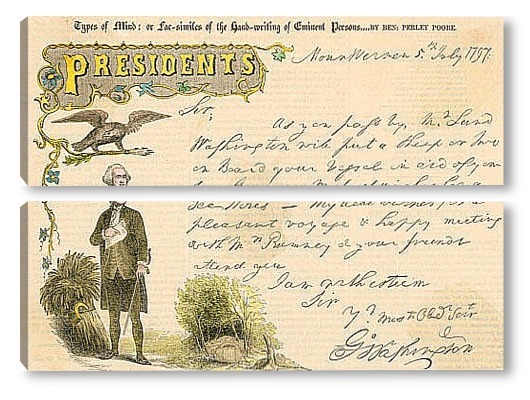 Types of Mind: or Fac-similes of the Hand-writing of Eminent Persons....BY BEN: PERLEY POORE.
PRESIDENTS
Mount Vernon 5.th July 1797.
Sir,
As you pass by, Mr. Lund
Washington will put a Sheep or two
on Board your Vessel in aid of your
Sea Stores — My best wishes for a
pleasant voyage & happy meeting
with Mrs Rumney & your friends
attend you
I am with esteem
Sir
Yr. Most Obedt Servt
Go Washington